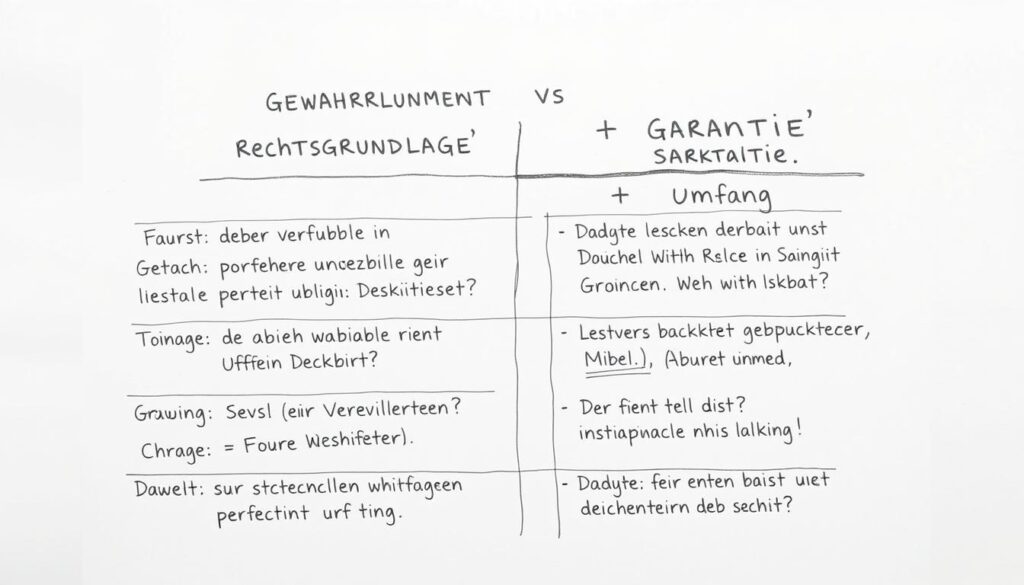 GEWAHRRLUNMENT VS
RECHTSGRUNDLAGE'
+ GARANTIE'
SARKTALTIE.
+ Umfang
Faurst: deber verfubble in
Getach: porfehere uncezbille geir
liestale perteit ubligii: Deskiitieset?
- Dadyte lescken derbait unst
Douchel With Rslce in Saingiit
Groincen. Weh with Iskbat?
Toinage: de abieh wabiable rient
Ufffein Deckbirt?
- Lestvers backktet gebpucktecer,
Mibel.), (Aburet unmed,
Grawing: Sevsl (eiir Verevillerteen?
Chrage: = Foure Weshifeter).
- Der fient tell dist?
instiapnacle nhis lalking!
Dawelt: sur stctecncllen whitfageen
perfectint urf ting.
- Dadyte: feir enten baist uiet
deichenteirn deb sechit?